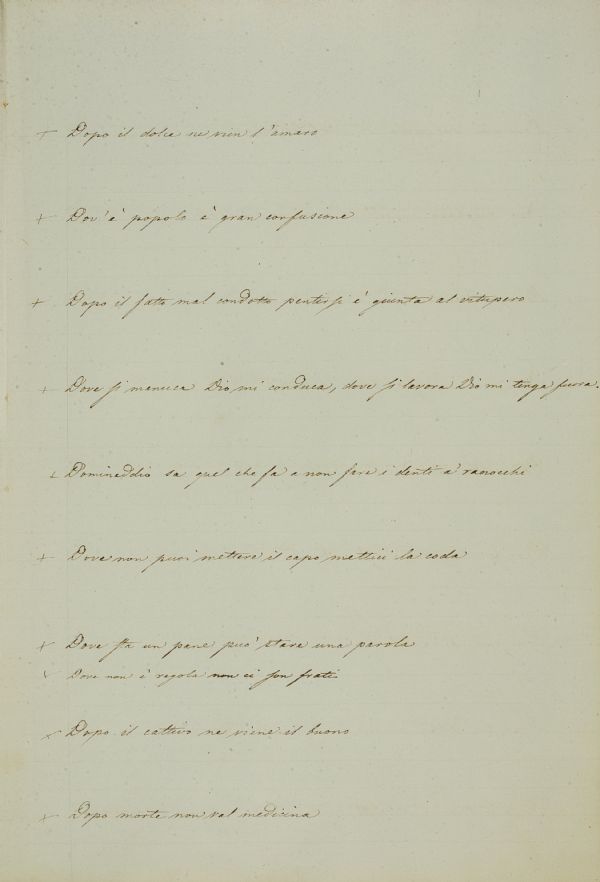 + Dopo il dolce ne vien l'amaro
+ Dov'è popolo è gran confusione
+ Dopo il fatto mal condotto pentirsi è giunta al vitupero
+ Dove si manuca Dio mi conduca, dove si lavora Dio mi tenga fuora.
+ Domineddio sa quel che fa a non fare i denti a' ranocchi
+ Dove non puoi mettere il capo mettici la coda
+ Dove sta un pane può stare una parola
+ Dove non è regola non ci son frati
+ Dopo il cattivo ne viene il buono
+ Dopo morte non val medicina